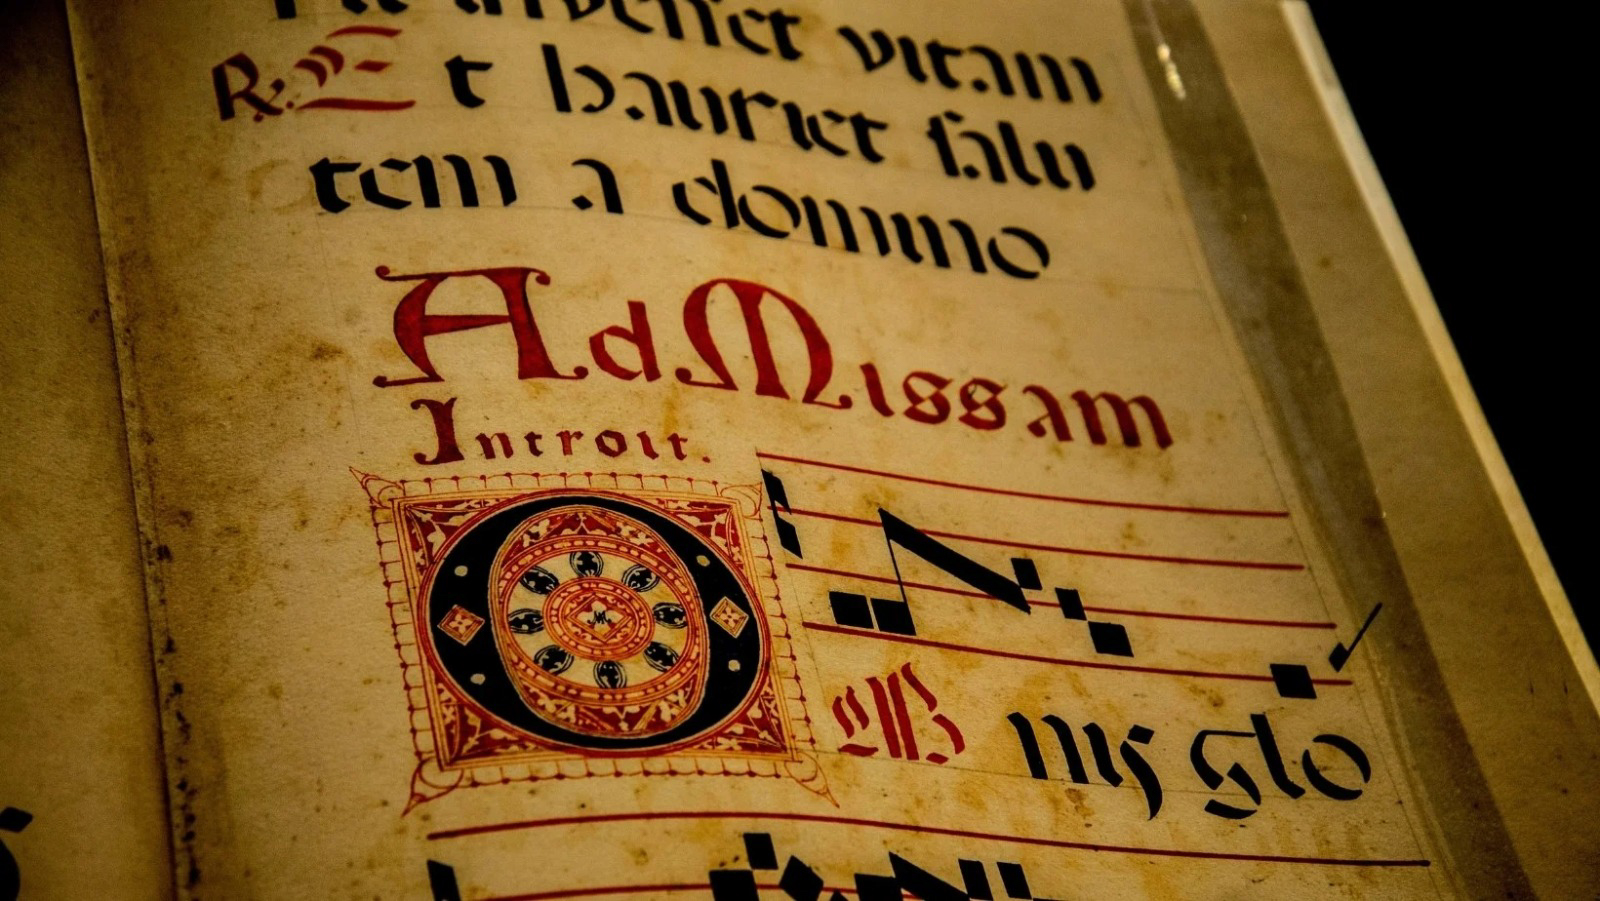 inveniet vitam
℟. Et hauriet salu
tem a domino
Ad Missam
Introit.
OM nis glo